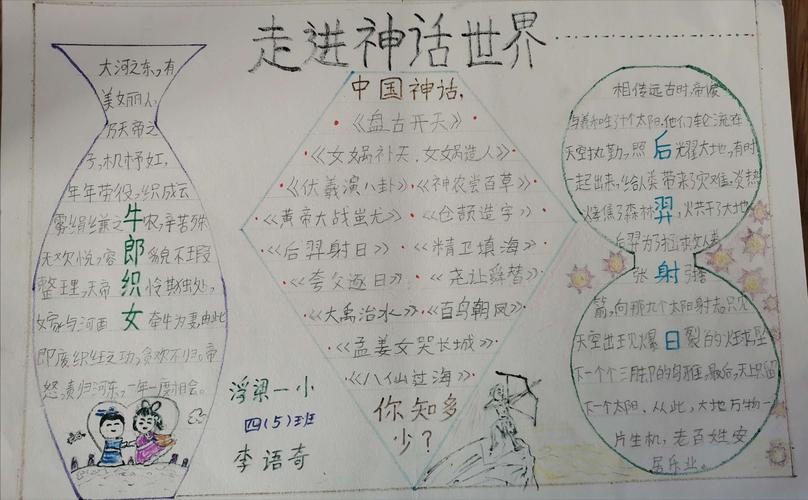 走进神话世界
大河之东,有
美女丽人,
乃天帝之
子,机杼女工,
年年劳役,织成云
雾绢缣之衣,辛苦殊
无欢悦,容貌不暇
整理,天帝怜其独处,
嫁与河西牵牛为妻,由此
即废织纴之功,贪欢不归。帝
怒,责归河东,一年一度相会。
牛郎织女
中国神话,
·《盘古开天》·
·《女娲补天,女娲造人》·
·《伏羲演八卦》·《神农尝百草》·
·《黄帝大战蚩尤》·《仓颉造字》·
·《后羿射日》·《精卫填海》·
·《夸父逐日》·《尧让舜替》·
·《大禹治水》·《百鸟朝凤》·
·《孟姜女哭长城》·
·《八仙过海》·
你知多
少?
浮梁一小
四(5)班
李语奇
相传远古时,帝俊
与羲和生了十个太阳,他们轮流在
天空执勤,照耀大地,有时
一起出来,给人类带来了灾难,炎热
烤焦了森林,烘干了大地
后羿为了拯求人类
张弓搭
箭,向那九个太阳射去,只见
天空出现爆裂的火球,坠
下一个个三足的乌鸦,最后,天上只留
下一个太阳,从此,大地万物一
片生机,老百姓安
居乐业。
后羿射日